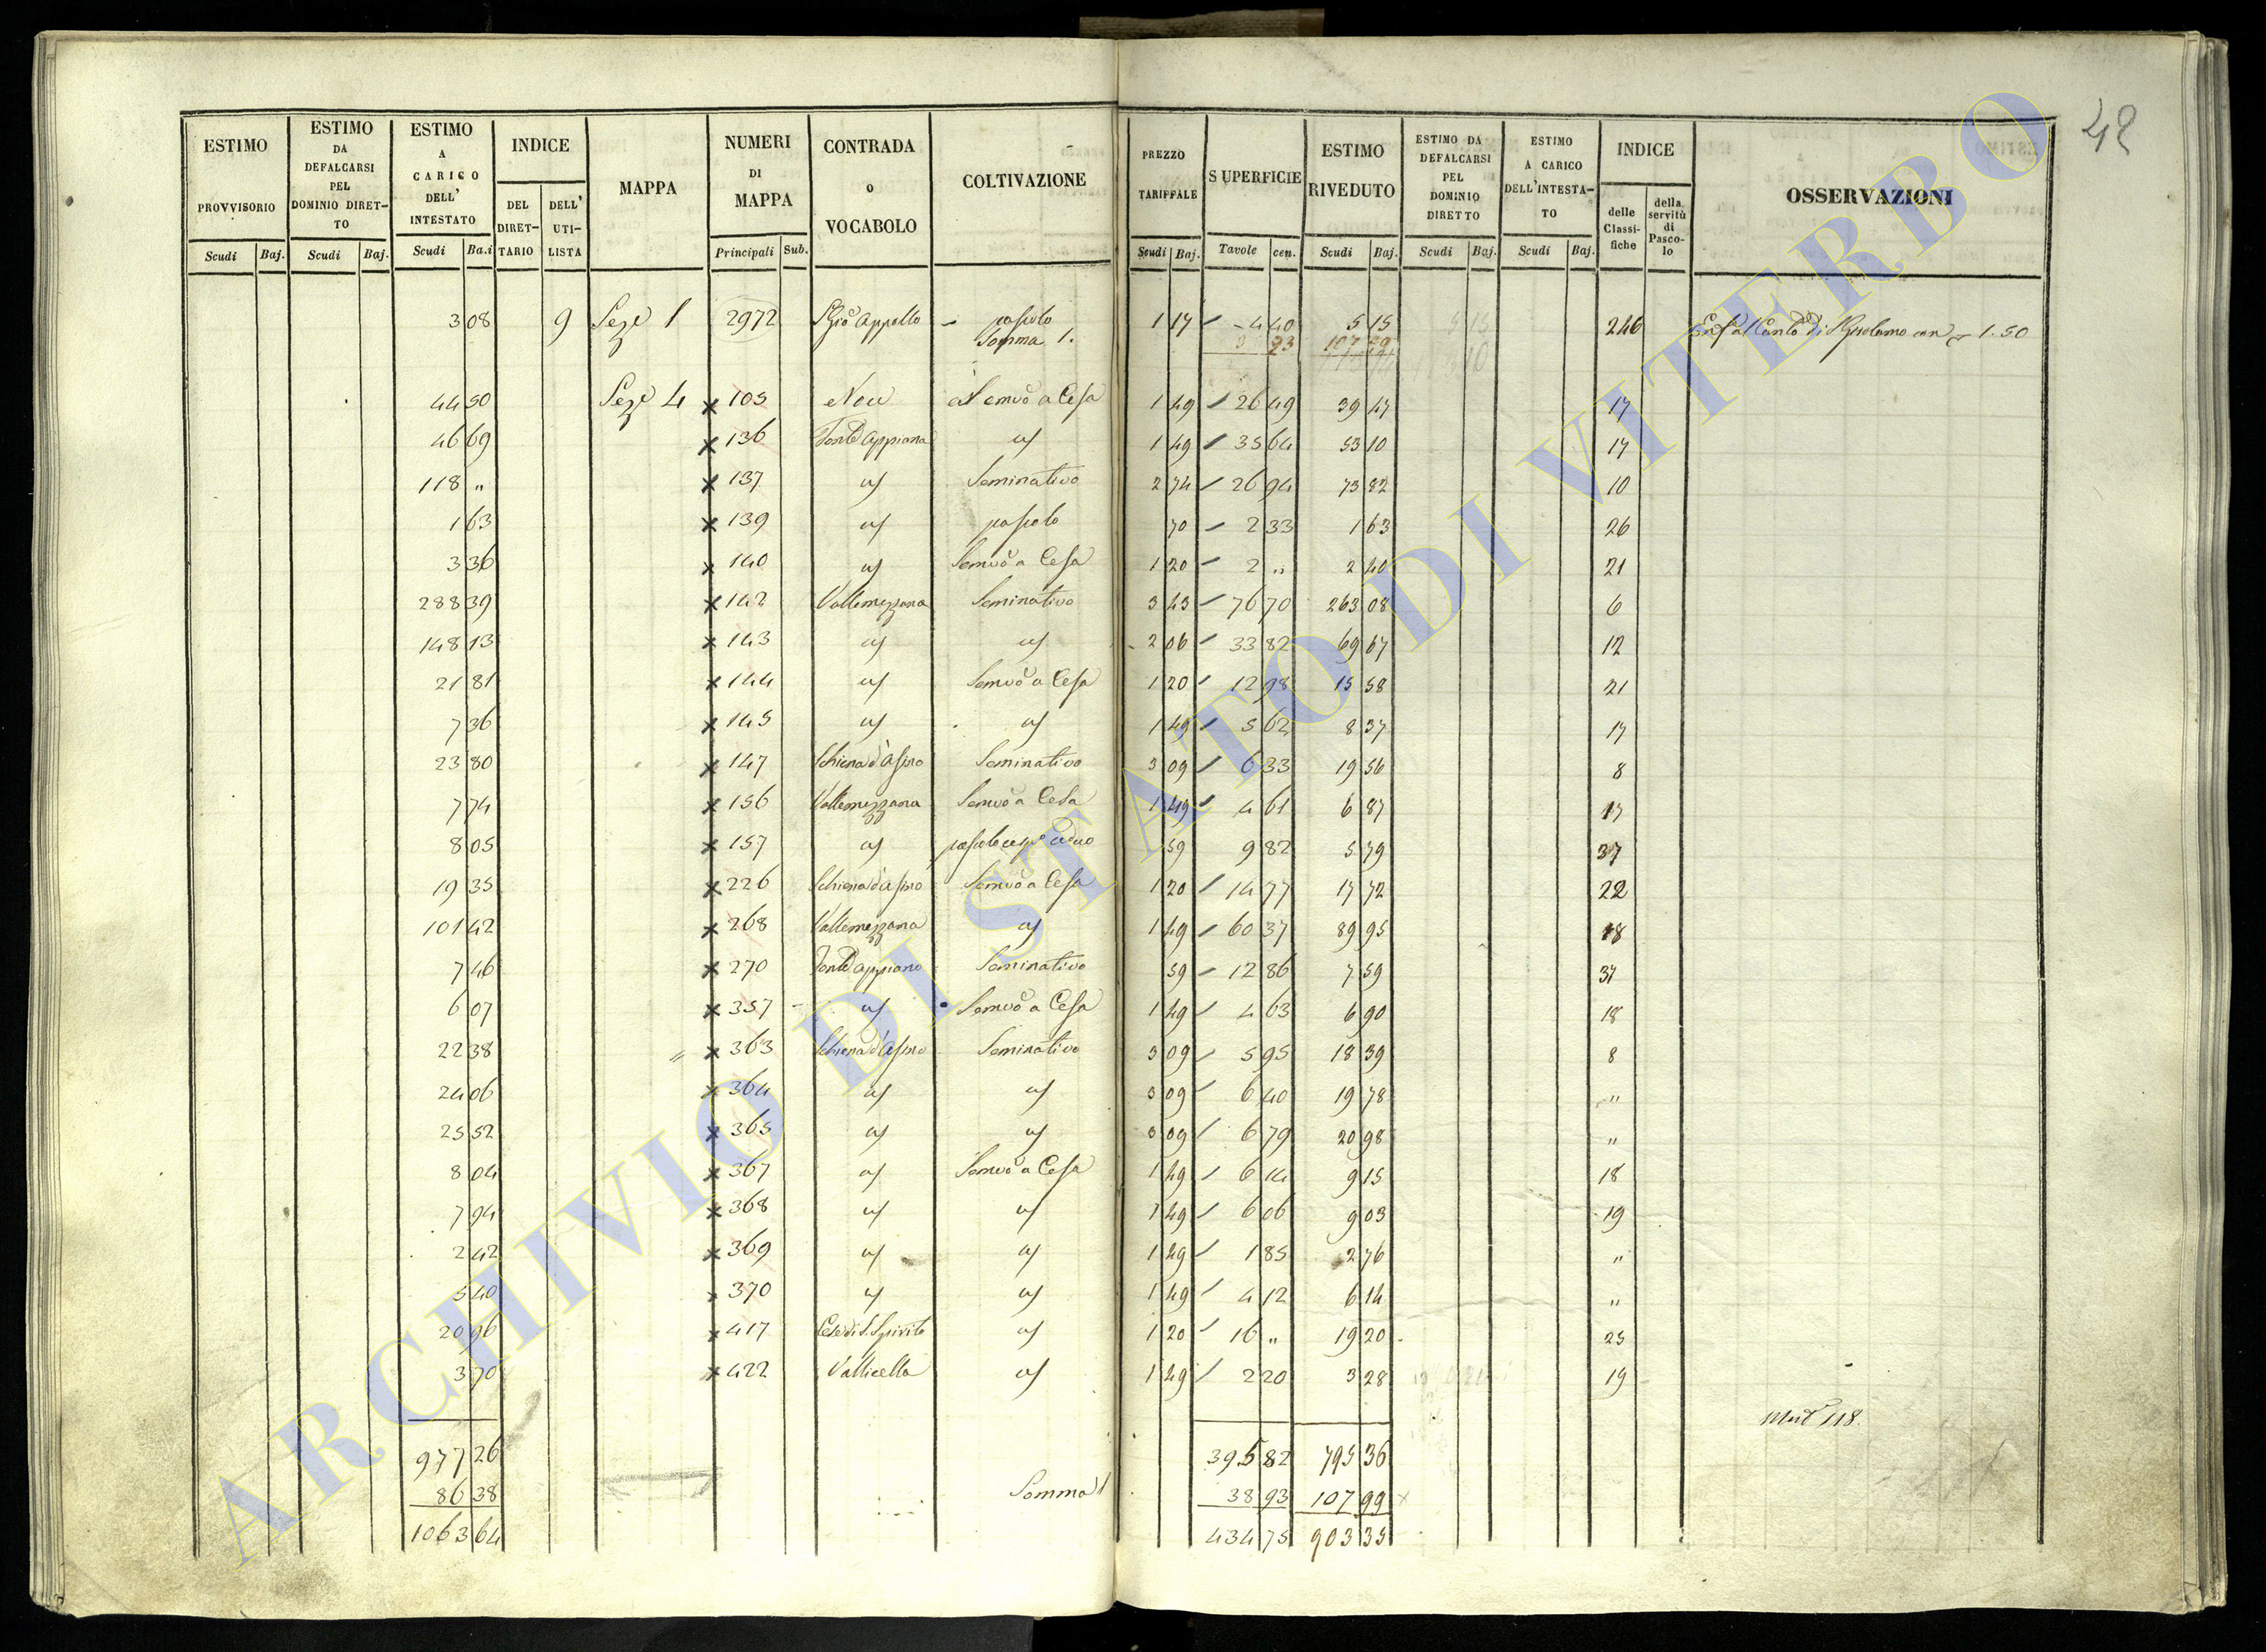 48
ESTIMO PROVVISORIO ESTIMO DA DEFALCARSI PEL DOMINIO DIRETTO ESTIMO A CARICO DELL' INTESTATO INDICE MAPPA NUMERI DI MAPPA CONTRADA O VOCABOLO COLTIVAZIONE PREZZO TARIFFALE SUPERFICIE ESTIMO RIVEDUTO ESTIMO DA DEFALCARSI PEL DOMINIO DIRETTO ESTIMO A CARICO DELL'INTESTATO INDICE OSSERVAZIONI
DEL DIRETTARIO DELL' UTILISTA delle Classifiche della servitù di Pascolo
Scudi Baj. Scudi Baj. Scudi Ba.i Principali Sub. Scudi Baj. Tavole cen. Scudi Baj. Scudi Baj. Scudi Baj.
3 08 9 Seze 1 2972 Appello pascolo 1 17 4 40 5 15 246 1.50
Somma 1. 107 99
44 50 Seze 4 x 103 a Cesa 1 49 26 49 39 47 17
46 69 x 136 Appiana 1 49 35 64 53 10 17
118 " x 137 Seminativo 2 74 26 94 73 82 10
1 63 x 139 pascolo 70 2 33 1 63 26
3 36 x 140 Semvo a Cesa 1 20 2 " 2 40 21
288 39 x 142 Vallemezzana Seminativo 3 43 76 70 263 08 6
148 13 x 143 2 06 33 82 69 67 12
21 81 x 144 Semvo a Cesa 1 20 12 98 15 58 21
7 36 x 145 1 49 5 62 8 37 17
23 80 x 147 Schiena d'Asino Seminativo 3 09 6 33 19 56 8
7 74 x 156 Vallemezzana Semvo a Cesa 1 49 4 61 6 87 17
8 05 x 157 59 9 82 5 79 37
19 35 x 226 Schiena d'Asino Semvo a Cesa 1 20 14 77 17 72 22
101 42 x 268 Vallemezzana 1 49 60 37 89 95 18
7 46 x 270 Appiano Seminativo 59 12 86 7 59 37
6 07 x 357 Semvo a Cesa 1 49 4 63 6 90 18
22 38 x 363 Schiena d'Asino Seminativo 3 09 5 95 18 39 8
24 06 x 364 3 09 6 40 19 78 "
25 52 x 365 3 09 6 79 20 98 "
8 04 x 367 Semvo a Cesa 1 49 6 14 9 15 18
7 94 x 368 1 49 6 06 9 03 19
2 42 x 369 1 49 1 85 2 76 "
5 40 x 370 1 49 4 12 6 14 "
20 96 x 417 Cese di S. Spirito 1 20 16 " 19 20 23
3 70 x 422 Vallicella 1 49 2 20 3 28 19
118.
977 26 395 82 795 36
86 38 Somma 1 38 93 107 99
1063 64 434 75 903 35
ARCHIVIO DI STATO DI VITERBO